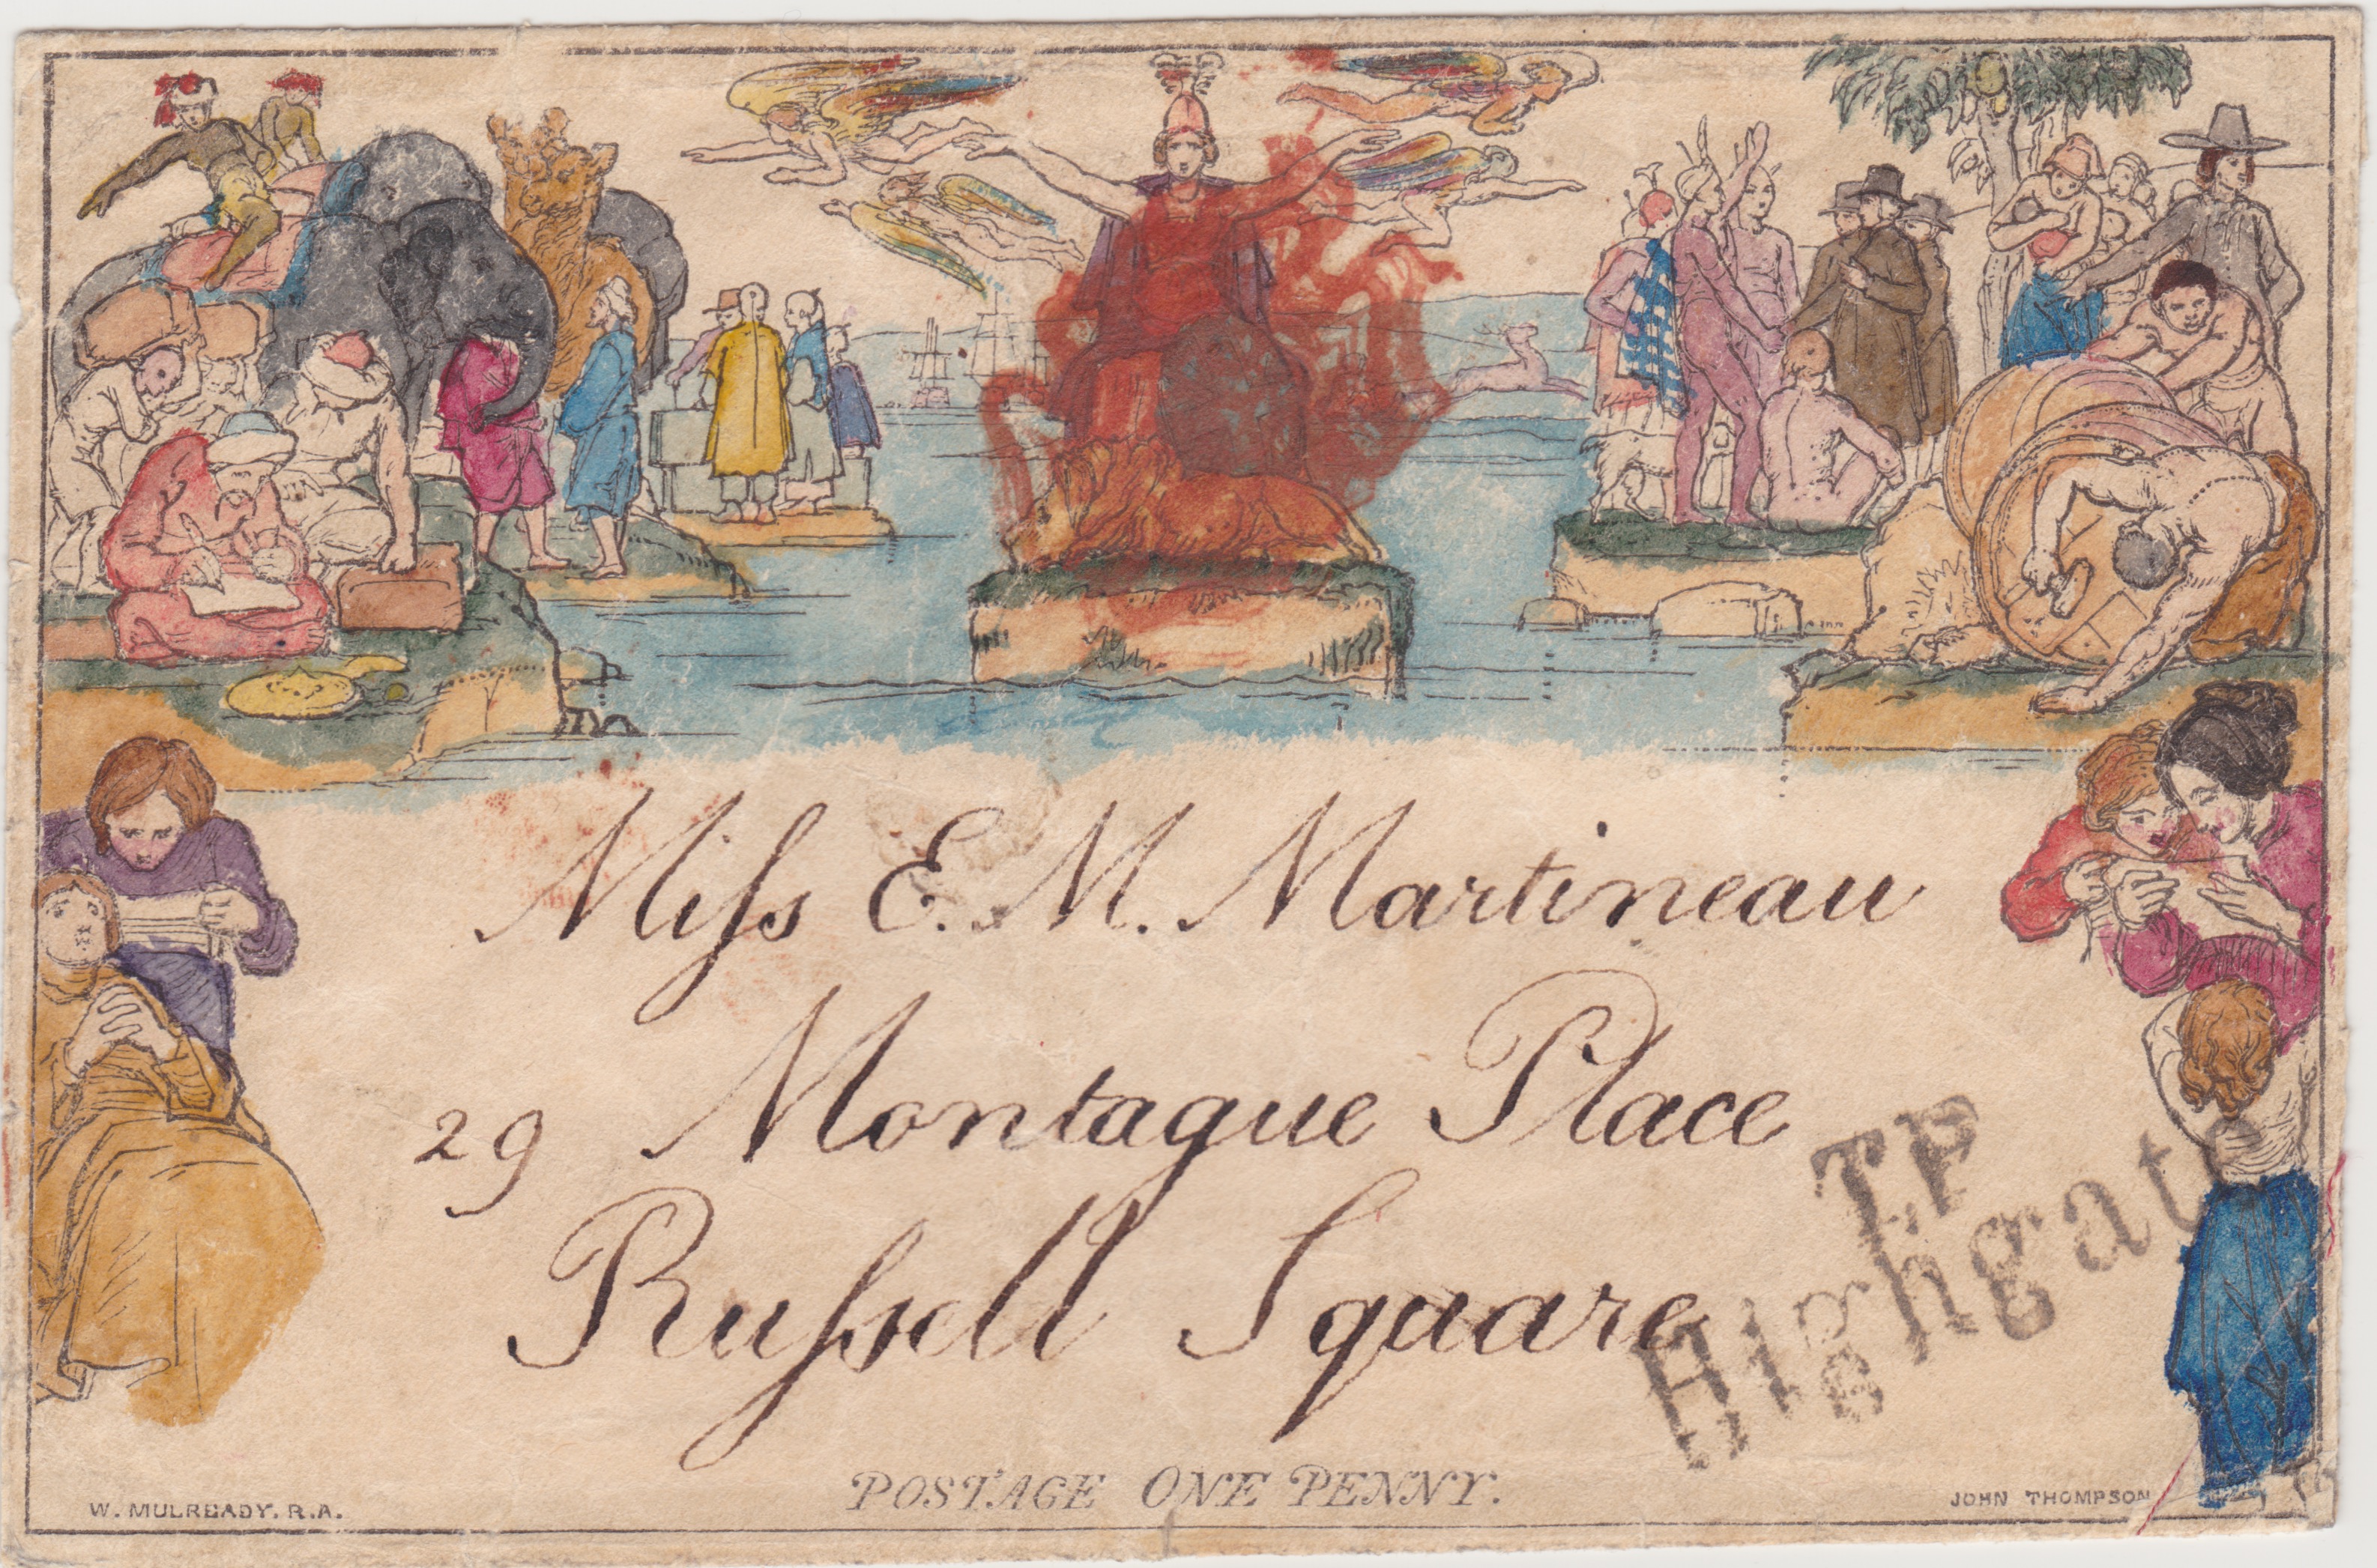 Miſs E. M. Martineau
29 Montague Place
Ruſsell Square
T.P
Highgate
POSTAGE ONE PENNY.
W. MULREADY. R.A.
JOHN THOMPSON